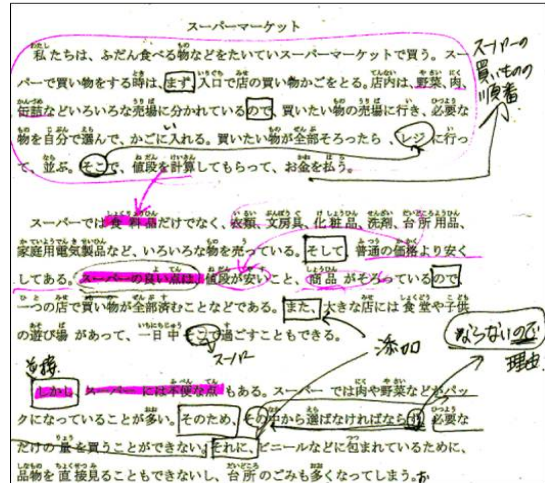 スーパーマーケット
私たちは、ふだん食べる物などをたいていスーパーマーケットで買う。スー
パーで買い物をする時は、まず入口で店の買い物かごをとる。店内は、野菜、肉、
缶詰などいろいろな売場に分かれているので、買いたい物の売場に行き、必要な
物を自分で選んで、かごに入れる。買いたい物が全部そろったら、レジに行っ
て、並ぶ。そこで、値段を計算してもらって、お金を払う。
スーパーの
買いもの
順番
スーパーでは食料品だけでなく、衣類、文房具、化粧品、洗剤、台所用品、
家庭用電気製品など、いろいろな物を売っている。そして、普通の価格より安く
してある。スーパーの良い点は、値段が安いこと、商品がそろっているので
一つの店で買い物が全部済むことなどである。また、大きな店には食堂や子供
の遊び場があって、一日中そこで過ごすこともできる。
スーパー
添加
ならないので
理由
逆接
しかし、スーパーには不便な点もある。スーパーでは肉や野菜などがパッ
クになっていることが多い。そのため、その中から選ばなければならず、必要な
だけの量を買うことができない。それに、ビニールなどに包まれているために、
品物を直接見ることもできないし、台所のごみも多くなってしまう。